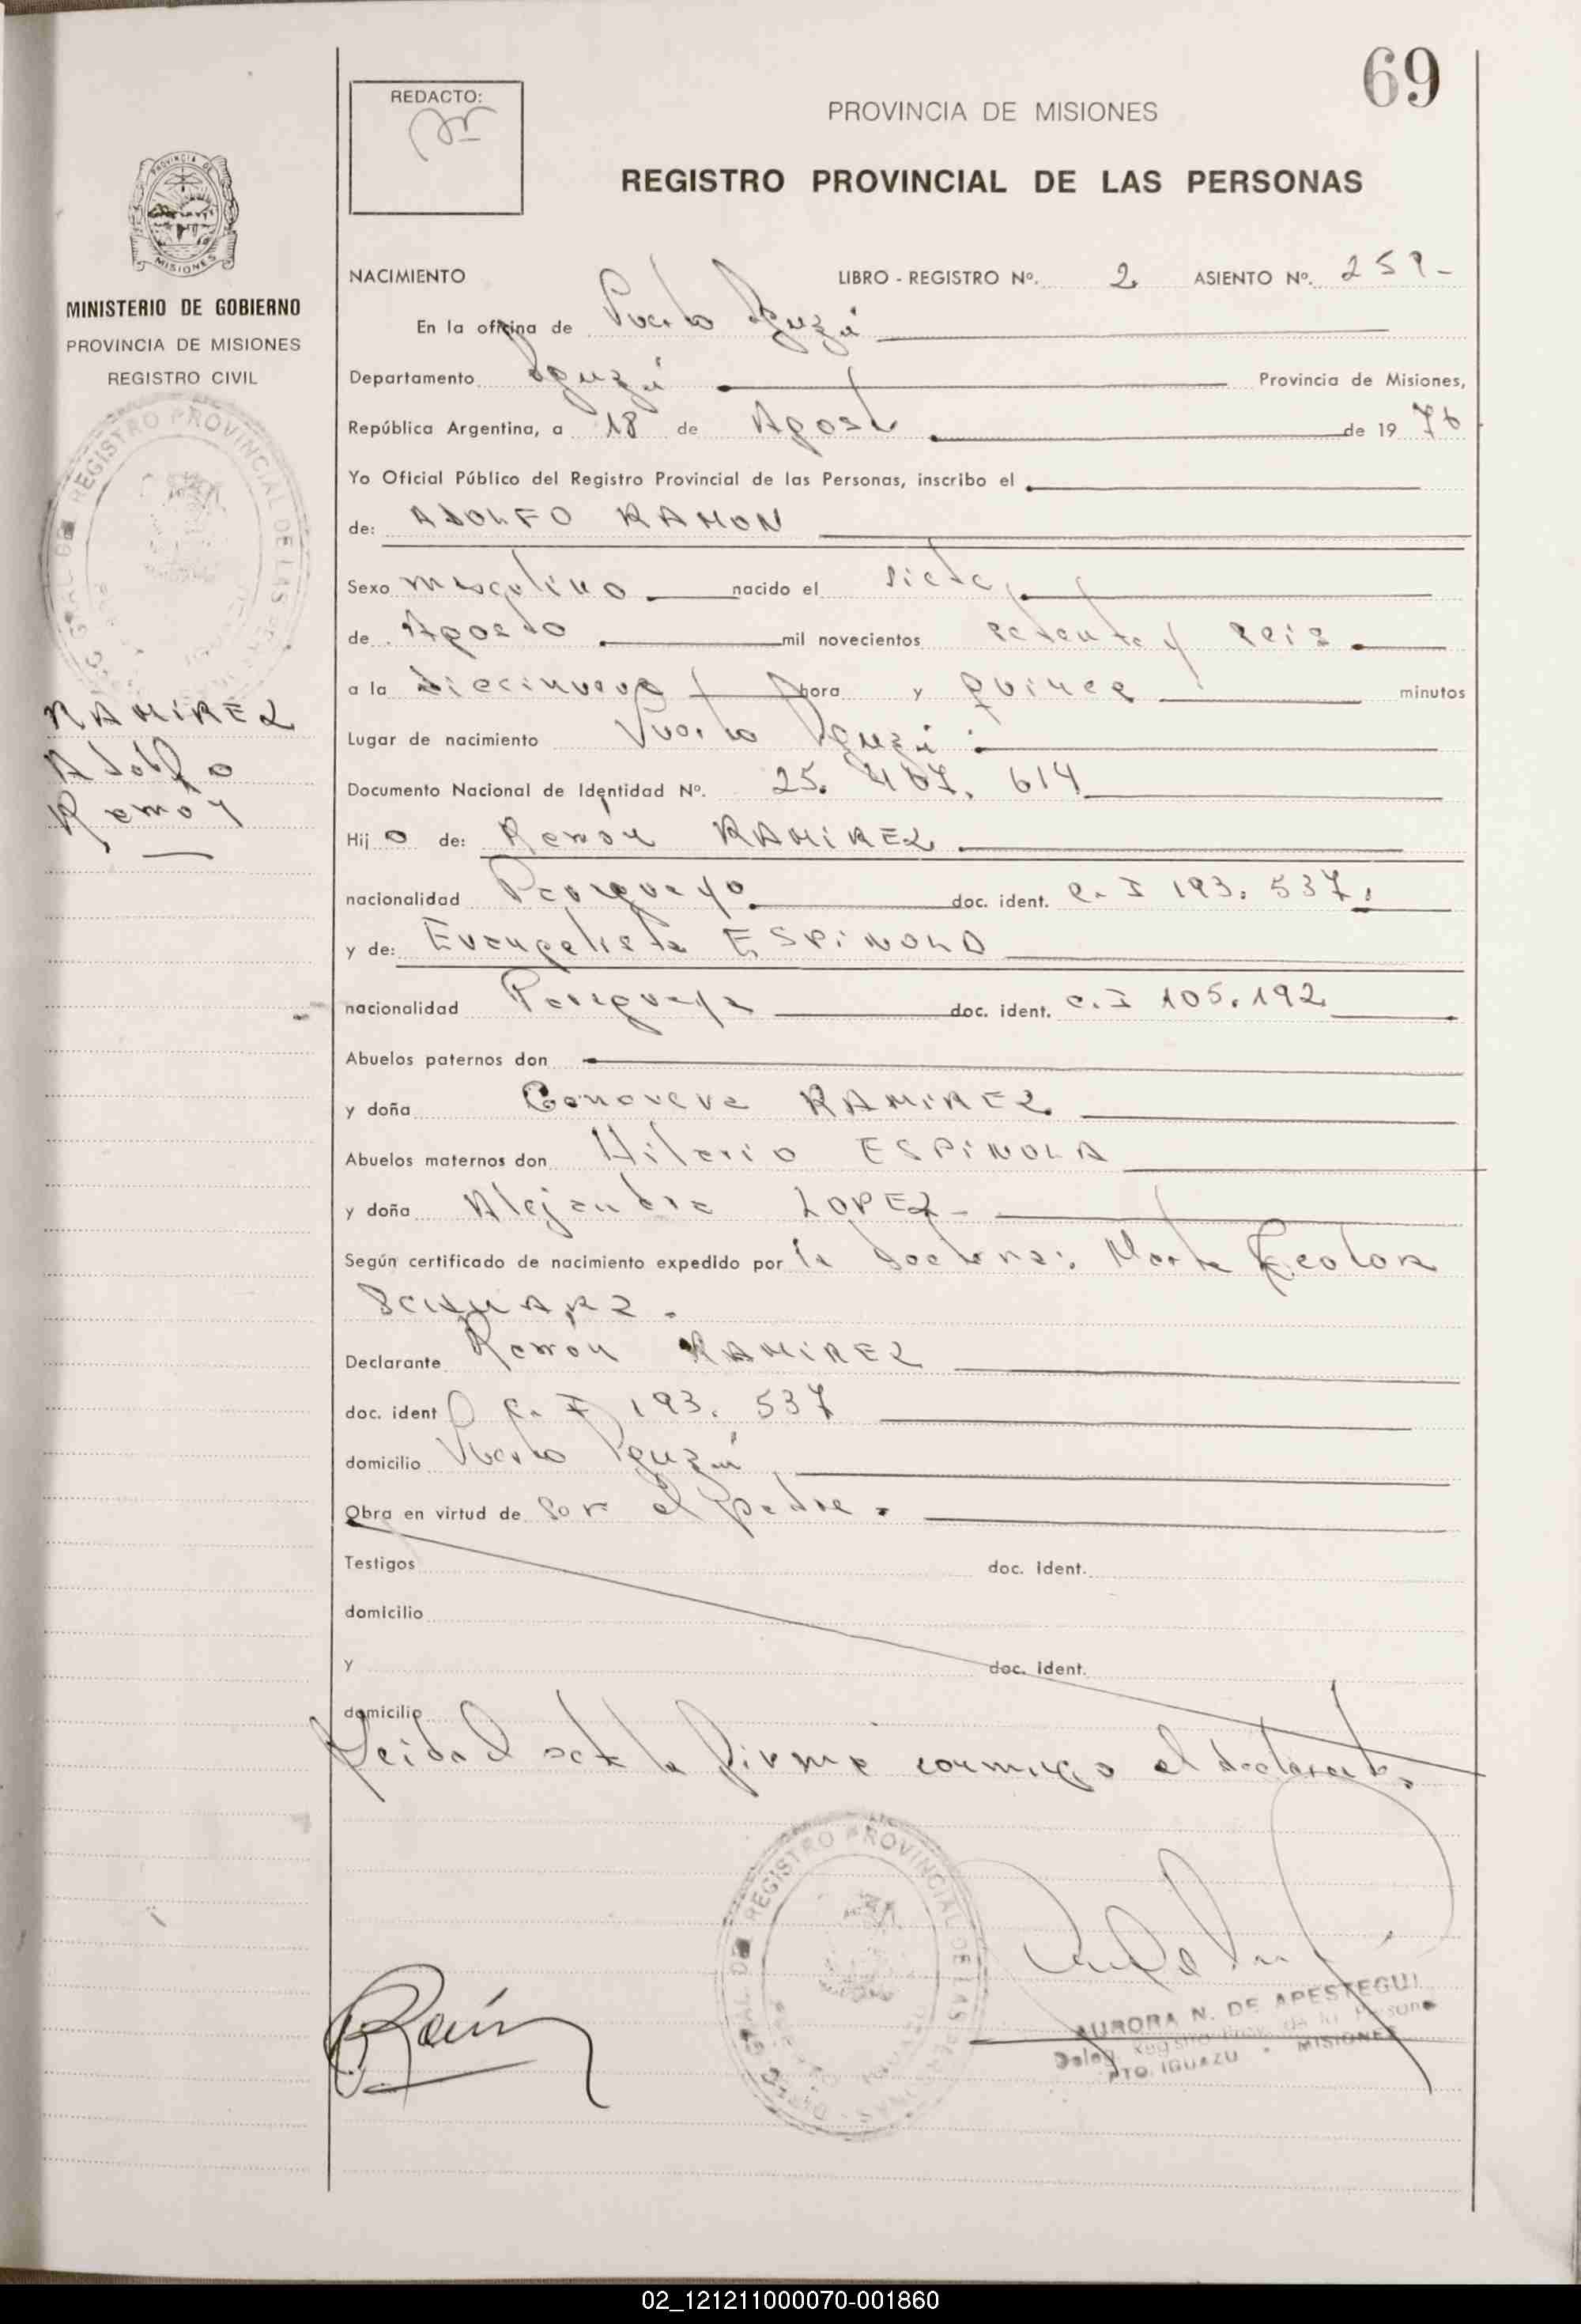 69
REDACTO:
PROVINCIA DE MISIONES
REGISTRO PROVINCIAL DE LAS PERSONAS
PROVINCIA DE
MISIONES
MINISTERIO DE GOBIERNO
PROVINCIA DE MISIONES
REGISTRO CIVIL
REGISTRO PROVINCIAL DE LAS
RAMIREZ
Adolfo
Ramón
NACIMIENTO LIBRO - REGISTRO Nº. 2 ASIENTO Nº. 259-
En la oficina de Puerto Iguazú
Departamento Iguazú Provincia de Misiones,
República Argentina, a 18 de Agosto de 19 76
Yo Oficial Público del Registro Provincial de las Personas, inscribo el
de: ADOLFO RAMON
Sexo masculino nacido el siete
de Agosto mil novecientos setenta y seis
a la diecinueve hora y quince minutos
Lugar de nacimiento Puerto Iguazú
Documento Nacional de Identidad Nº. 25. 467. 614
Hij o de: Ramón RAMIREZ
nacionalidad Paraguayo doc. ident. C. I 193. 537.
y de: Evangelista ESPINOLA
nacionalidad Paraguaya doc. ident. C. I 105. 192
Abuelos paternos don
y doña Genoveva RAMIREZ
Abuelos maternos don Hilario ESPINOLA
y doña Alejandra LOPEZ-
Según certificado de nacimiento expedido por la doctora: Marta
SCHWARZ.
Declarante Ramón RAMIREZ
doc. ident C. I 193. 537
domicilio Puerto Iguazú
Obra en virtud de Ser el padre.
Testigos doc. ident.
domicilio
y doc. ident.
domicilio
Leida el acta la firma conmigo el declarante.
REGISTRO PROVINCIAL DE LAS PERSONAS
AURORA N. DE APESTEGUI
Deleg. Registro Prov. de las Personas
PTO. IGUAZU - MISIONES
02_121211000070-001860